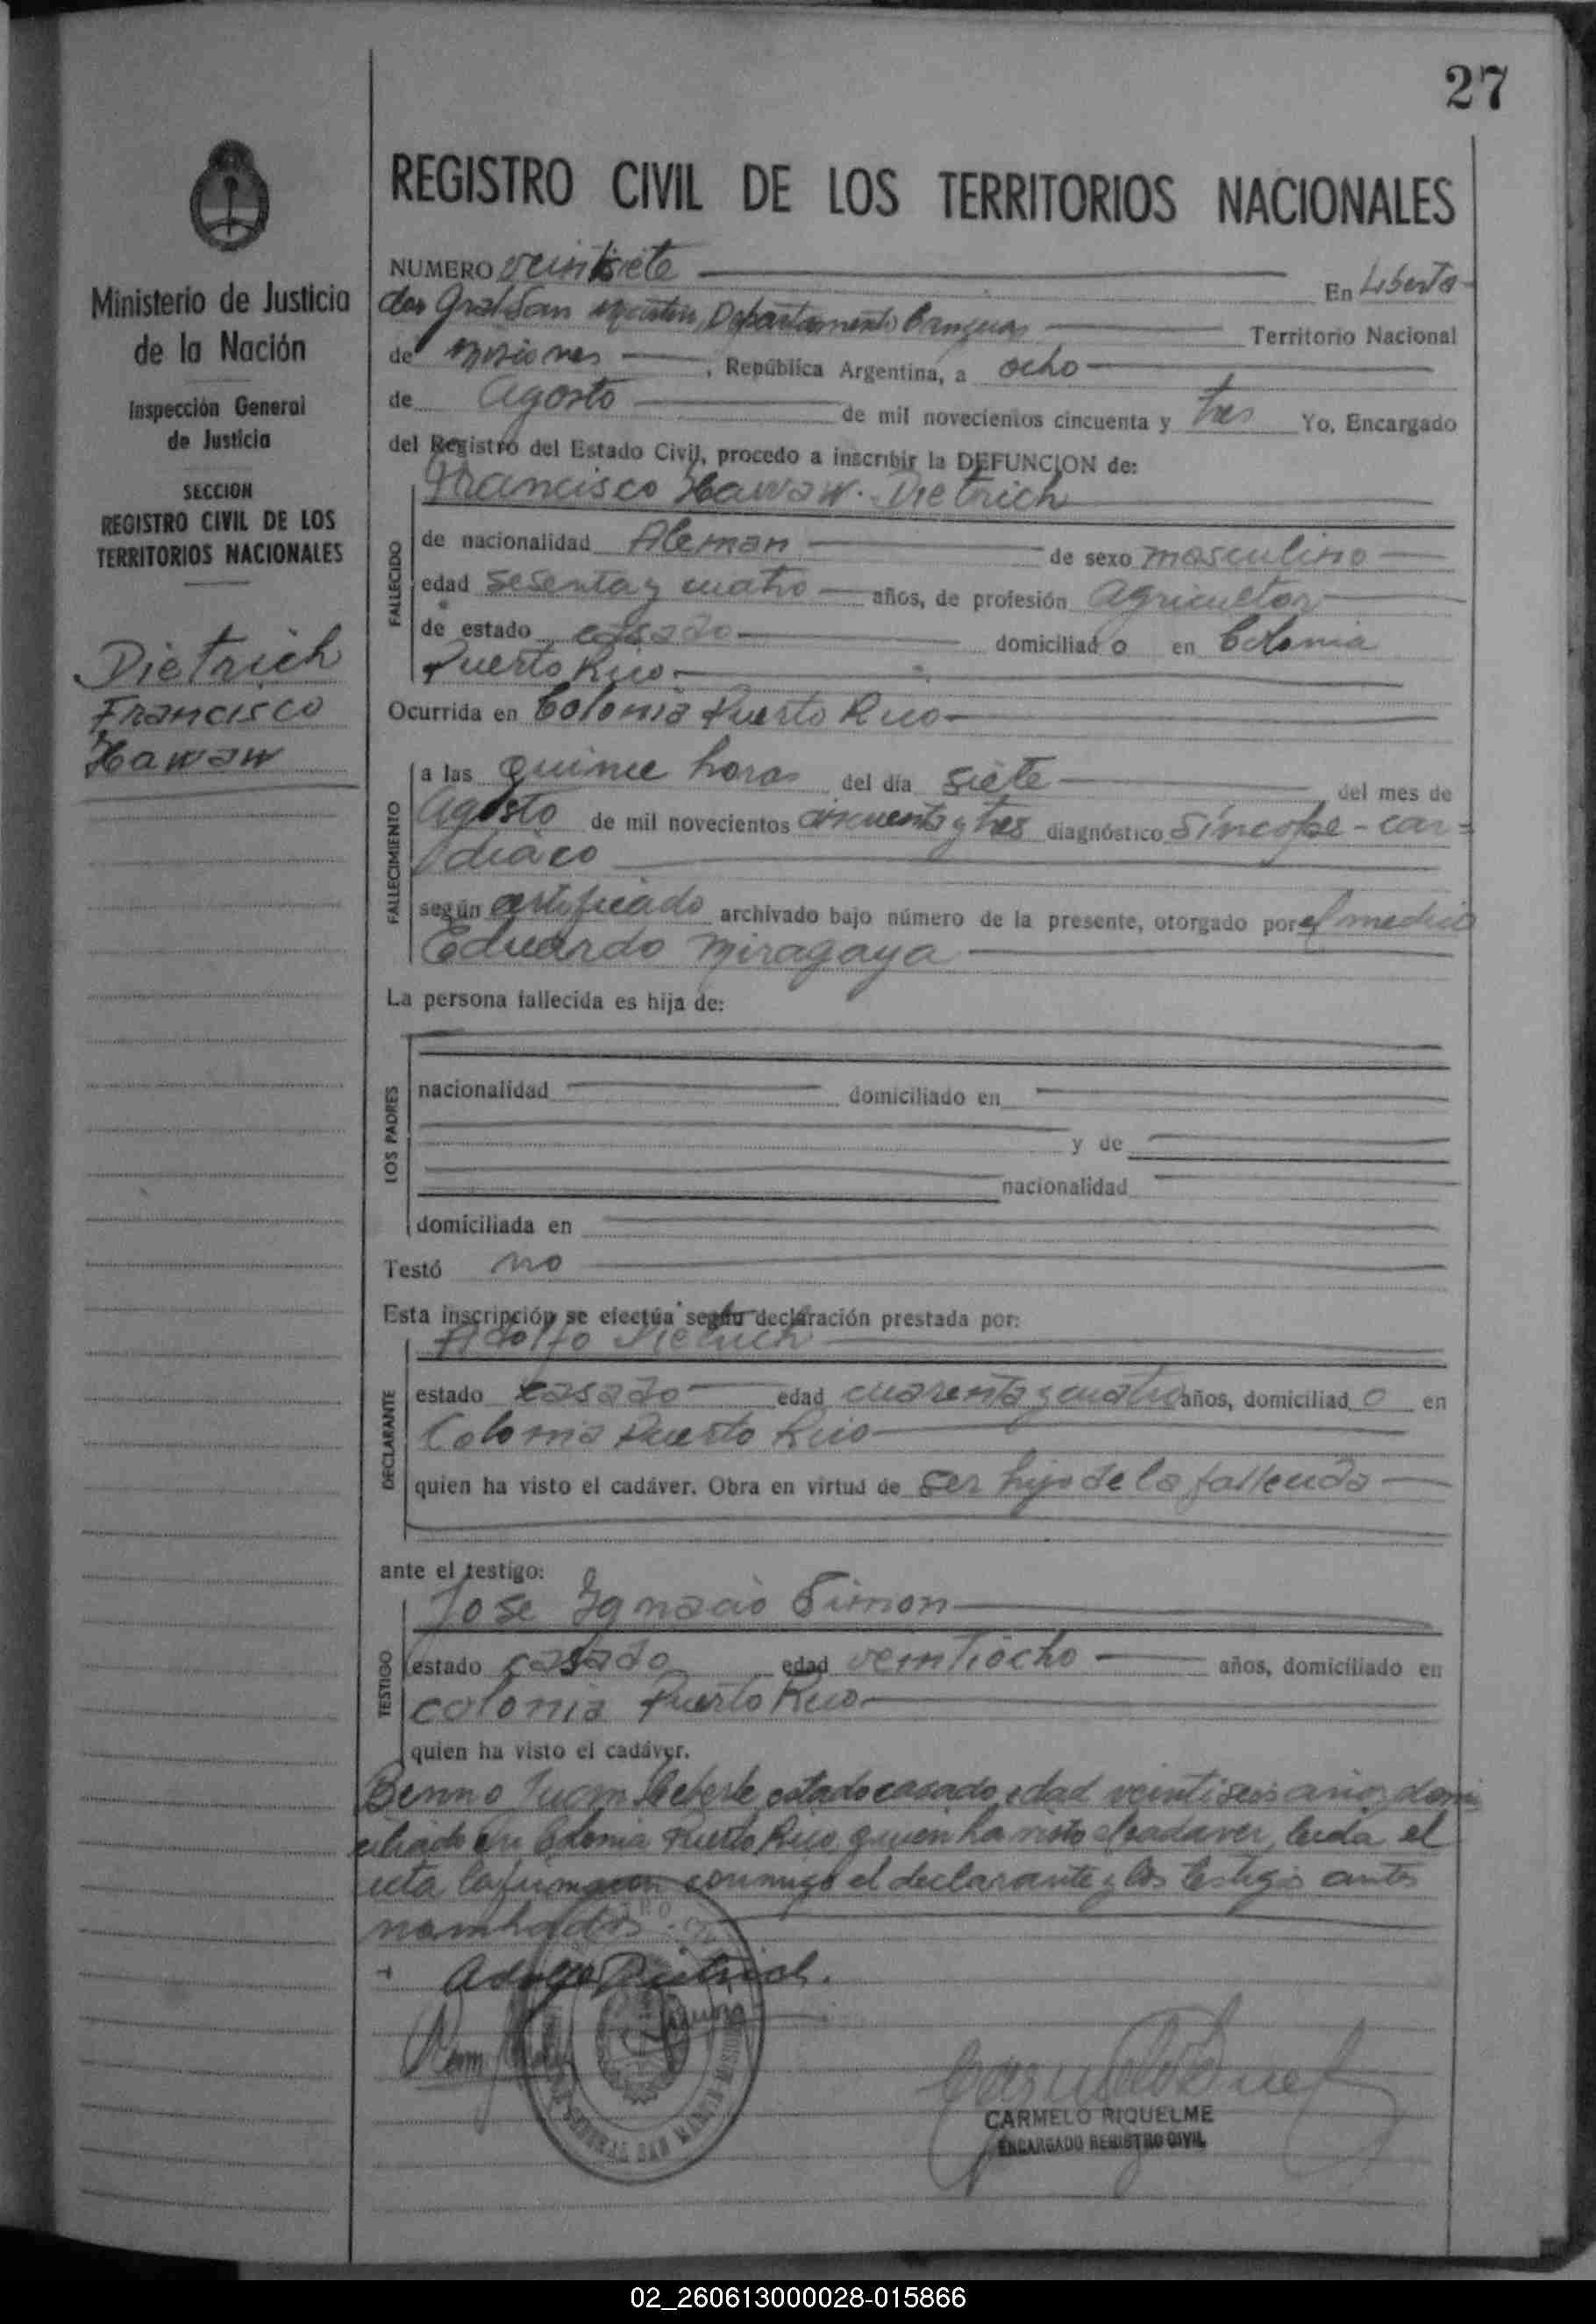 27
REGISTRO CIVIL DE LOS TERRITORIOS NACIONALES
Ministerio de Justicia
de la Nación
Inspección General
de Justicia
SECCION
REGISTRO CIVIL DE LOS
TERRITORIOS NACIONALES
Dietrich
Francisco
Hawaw
NUMERO veintisiete
En Liberta-
dor Gral San Martin, Departamento Territorio Nacional
de Misiones, República Argentina, a ocho
de Agosto de mil novecientos cincuenta y tres Yo, Encargado
del Registro del Estado Civil, procedo a inscribir la DEFUNCION de:
Francisco Hawaw. Dietrich
FALLECIDO
de nacionalidad Aleman de sexo masculino
edad sesenta y cuatro años, de profesión Agricultor
de estado casado domiciliado en Colonia
Puerto Rico.
Ocurrida en Colonia Puerto Rico
FALLECIMIENTO
a las quince horas del día siete del mes de
Agosto de mil novecientos cincuenta y tres diagnóstico Síncope-car-
diaco
según certificado archivado bajo número de la presente, otorgado por el medico
Eduardo Miragaya
La persona fallecida es hija de:
LOS PADRES
nacionalidad domiciliado en
y de
nacionalidad
domiciliada en
Testó no
Esta inscripción se efectúa según declaración prestada por:
Adolfo Dietrich
DECLARANTE
estado casado edad cuarenta y cuatro años, domiciliado en
Colonia Puerto Rico
quien ha visto el cadáver. Obra en virtud de ser hijo de la fallecida
ante el testigo:
Jose Ignacio Simon
TESTIGO
estado casado edad veintiocho años, domiciliado en
colonia Puerto Rico
quien ha visto el cadáver.
Benno Juan estado casado, edad veintiseis años, domi
ciliado en Colonia Puerto Rico, quien ha visto el cadaver, leida el
acta la firman conmigo el declarante y los testigos antes
nombrados.
Adolfo Dietrich.
GENERAL SAN MARTIN
CARMELO RIQUELME
ENCARGADO REGISTRO CIVIL
02_260613000028-015866